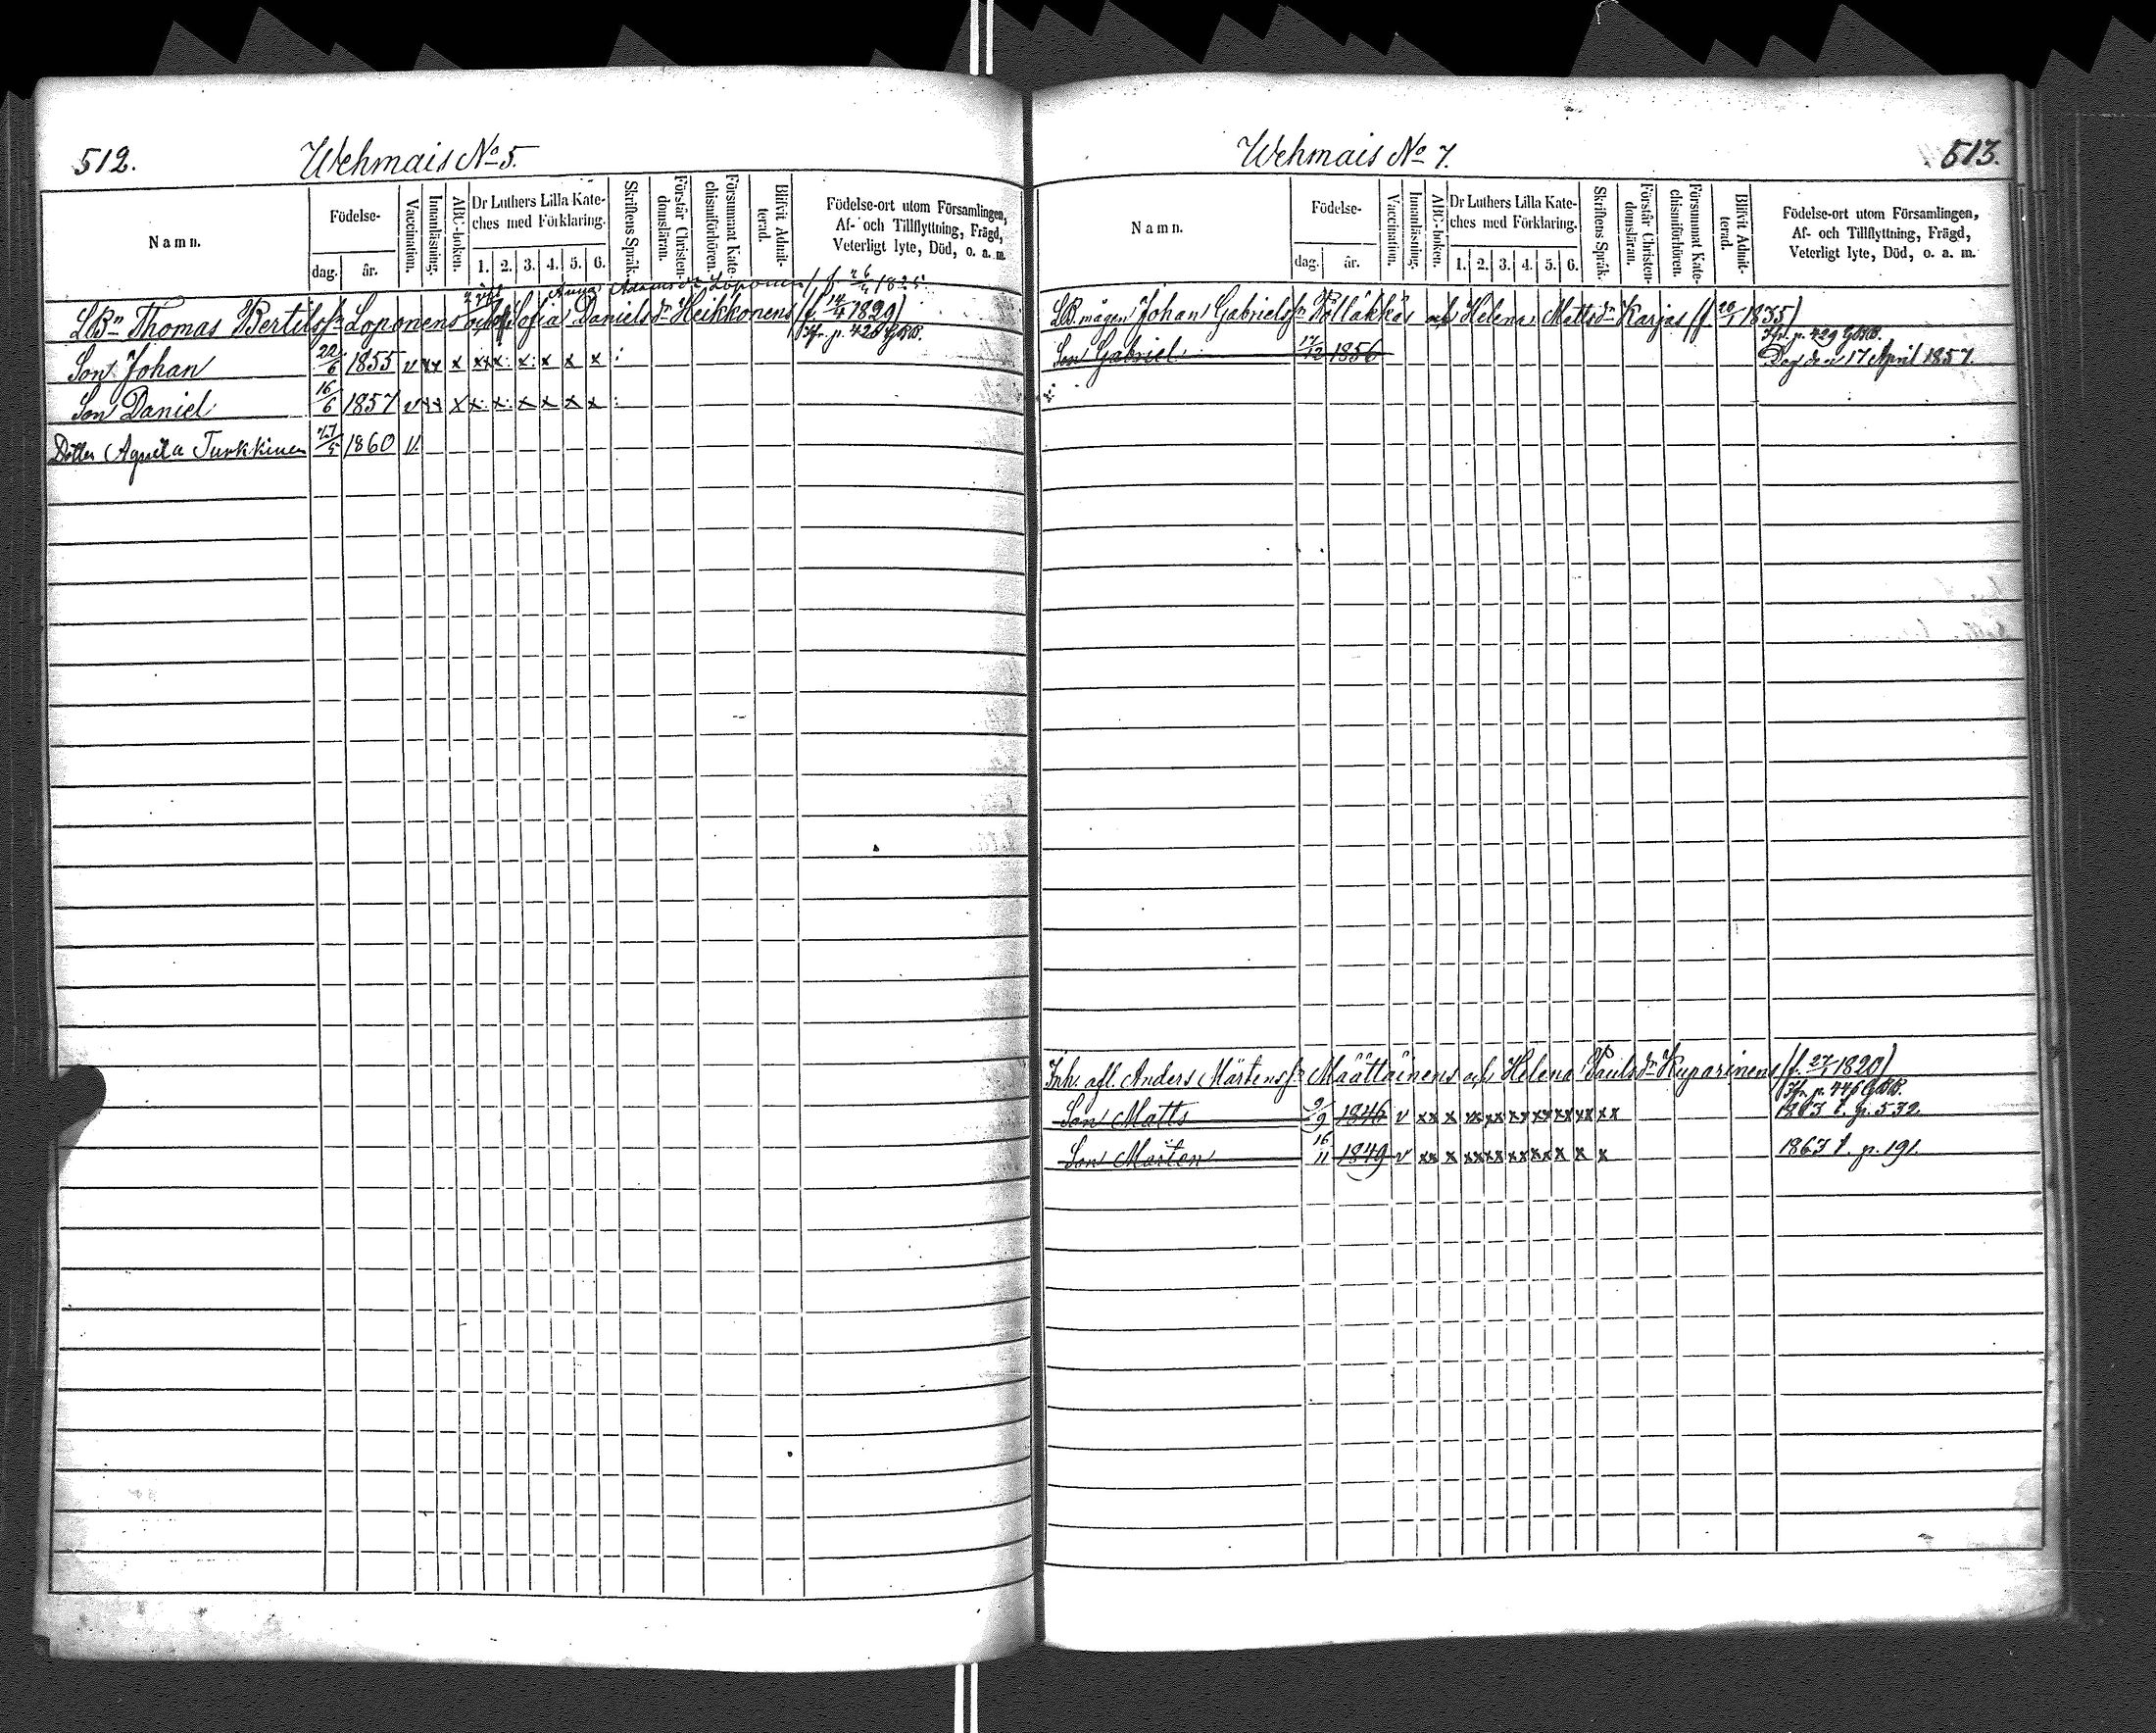 512.
Wehmais No 5.
Namn.
Födelse-
dag.
år.
Vaccination.
Innanläsning.
ABC-boken.
Dr Luthers Lilla Kate-
ches med Förklaring.
1. 2. 3. 4. 5. 6.
Skriftens Språk.
Förstår Christen-
domsläran.
Försummat Kate-
chismiförhören.
Blifvit Admit-
terad.
Födelse-ort utom Församlingen,
Af- och Tillflyttning, Frägd,
Veterligt lyte, Död, o. a. m.
Anna Adamsdr Loponen
LBn Thomas Bertilsn Loponens Sofia Danielsdr Heikkonens (f. 14/4 1829)
Son Johan 22/6 1855 v xx x xx x x x x x
Son Daniel 16/6 1857 v xx x x x x x x x
Dotter Agneta Turkkinen 27/5 1860 v.
Wehmais No 7.
513.
Namn.
Födelse-
dag.
år.
Vaccination.
Innanläsning.
ABC-boken.
Dr Luthers Lilla Kate-
ches med Förklaring.
1. 2. 3. 4. 5. 6.
Skriftens Språk.
Förstår Christen-
domsläran.
Försummat Kate-
chismiförhören.
Blifvit Admit-
terad.
Födelse-ort utom Församlingen,
Af- och Tillflyttning, Frägd,
Veterligt lyte, Död, o. a. m.
LB. mågen Johan Gabrielsn Pölläkkäs Helena Mattsdr Karjas (f. 20/1 1835)
p. 429
Son Gabriel 17/12 1856 Död den 17 April 1857.
Inh. afl. Anders Mårtensn Määttäinens Helena Paulsdr Kuparinens (f. 27/1 1820)
p. 446
Son Matts 2/9 1846 v xx x xx xx xx xx xx xx xx 1863 t. p. 532.
Son Mårten 16/11 1849 v xx x xx xx xx xx x x x 1863 t. p. 191.